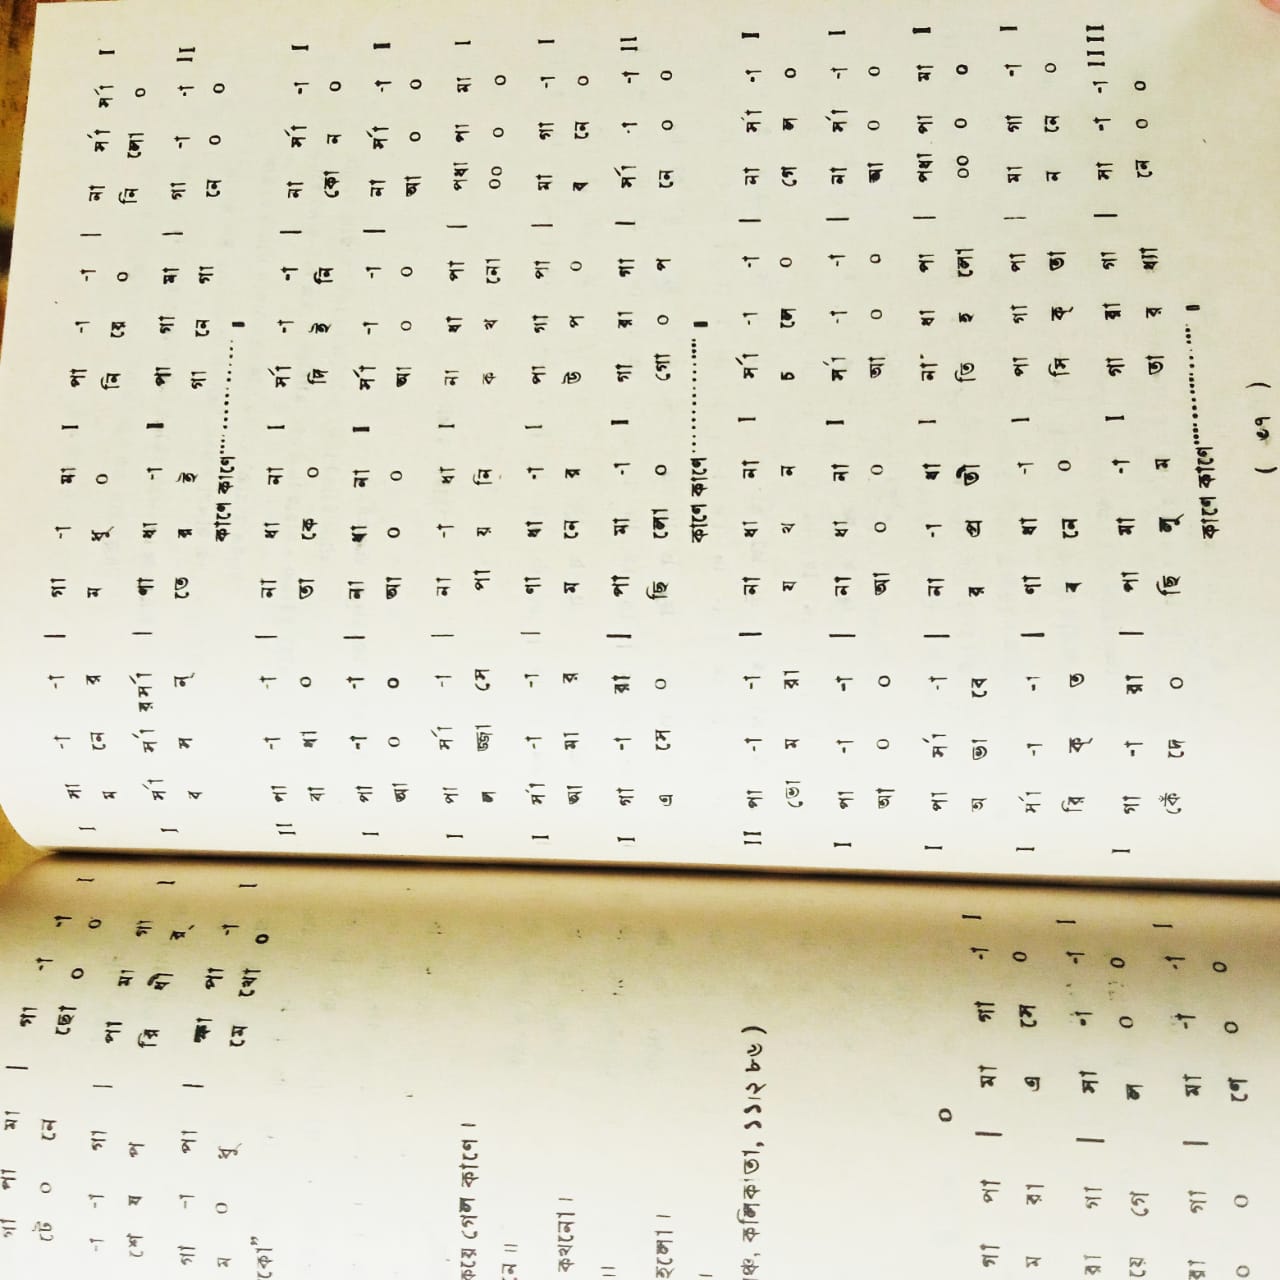 গা পা মা | গা -া -া I
টে ০ নে ছো ০ ০
-া -া গা | পা মা গা I
শে ষ প রি ধী র্
গা -া পা | ক্ষা পা -া I
ম ০ ধু মে খো ০
কো”
কয়ে গেল কাণে।
নে॥
কখনো।
॥
হলো।
।
কলিকাতা,
০
গা পা | মা গা -া I
ম রা এ সে ০
রা গা | সা -া -া I
য়ে গে ল ০ ০
রা গা | মা -া -া I
০ ০ ণে ০ ০
I সা -া -া | গা -া মা I পা -া -া | না র্সা র্সা I
ম নে র ম ধু ০ নি য়ে ০ নি লো ০
I র্সা র্সা রর্সা | ণা ধা -া I পা গা মা | গা -া -া II
ব স ন্ তে র ই গা নে গা নে ০ ০
কাণে কাণে............ ।
II পা -া -া | না ধা না I র্সা -া -া | না র্সা -া I
বা ধা ০ তা কে ০ দি ই নি কো ন ০
I পা -া -া | না ধা না I র্সা -া -া | না র্সা -া I
আ ০ ০ আ ০ ০ আ ০ ০ আ ০ ০
I পা র্সা -া | না -া ধা I না ধা পা | পধা পা মা I
ল জ্জা সে পা য় নি ক খ নো ০০ ০ ০
I র্সা -া -া | ণা ধা -া I পা গা পা | মা গা -া I
আ মা র ম নে র উ প ০ ব নে ০
I গা -া রা | পা মা -া I গা রা গা | র্সা -া -া II
এ সে ০ ছি লো ০ গো ০ প নে ০ ০
কাণে কাণে............ ।
II পা -া -া | না ধা না I র্সা -া -া | না র্সা -া I
তো ম রা য খ ন চ লে ০ গে ল ০
I পা -া -া | না ধা না I র্সা -া -া | না র্সা -া I
আ ০ ০ আ ০ ০ আ ০ ০ আ ০ ০
I পা র্সা -া | না -া ধা I না ধা পা | পধা পা মা I
অ ভা বে র প্র তী তি হ লো ০০ ০ ০
I র্সা -া -া | ণা ধা -া I পা গা পা | মা গা -া I
রি ক্ ত ব নে ০ সি ক্ তা ন নে ০
I গা -া রা | পা মা -া I গা রা গা | সা -া -া IIII
কেঁ দে ০ ছি লু ম তা র ধ্যা নে ০ ০
কাণে কাণে............ ।